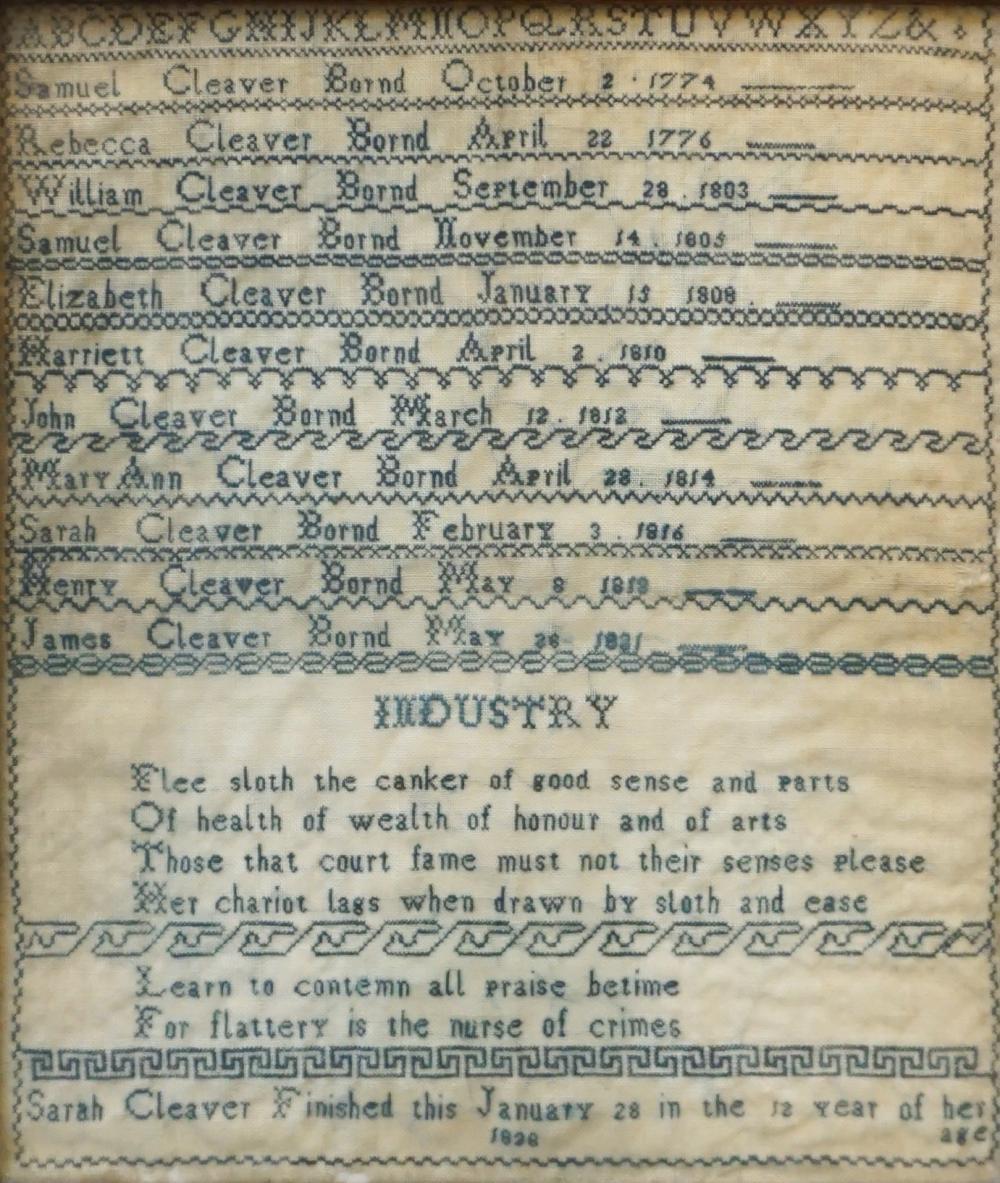 ABCDEFGHIJKLMNOPQRSTUVWXYZ&
Samuel Cleaver Bornd October 2 . 1774
Rebecca Cleaver Bornd April 22 1776
William Cleaver Bornd September 28 . 1803
Samuel Cleaver Bornd November 14 . 1805
Elizabeth Cleaver Bornd January 15 1808 .
Harriett Cleaver Bornd April 2 . 1810
John Cleaver Bornd March 12 . 1812
Mary Ann Cleaver Bornd April 28 . 1814
Sarah Cleaver Bornd February 3 . 1816
Henry Cleaver Bornd May 8 1819
James Cleaver Bornd May 26 1821
INDUSTRY
Flee sloth the canker of good sense and parts
Of health of wealth of honour and of arts
Those that court fame must not their senses please
Her chariot lags when drawn by sloth and ease
Learn to contemn all praise betime
For flattery is the nurse of crimes
Sarah Cleaver Finished this January 28 in the 12 year of her
1828 age